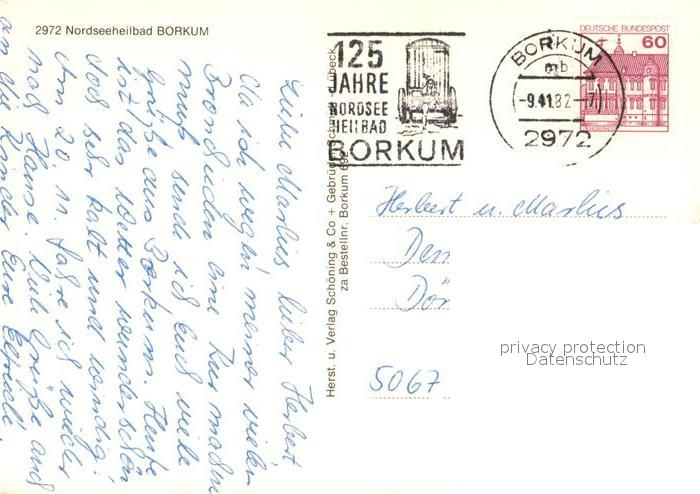 2972 Nordseeheilbad BORKUM
125
JAHRE
NORDSEE
HEILBAD
BORKUM
BORKUM
mb
-9.11.82--7
2972
DEUTSCHE BUNDESPOST
60
Liebe Marlies, lieber Herbert
Da ich wegen meiner vielen
Bronchitiden eine Kur machen
muß, sende ich Euch viele
Grüße aus Borkum. Heute
ist das Wetter wunderschön
doch sehr kalt und windig!
Am 20. 11. fahre ich wieder
nach Hause. Viele Grüße auch
an die Kinder Eure Elfriede.
Herst. u. Verlag Schöning & Co + Gebrüder Schmidt, Lübeck
za Bestellnr. Borkum 692
Herbert u. Marlies
5067
privacy protection
Datenschutz